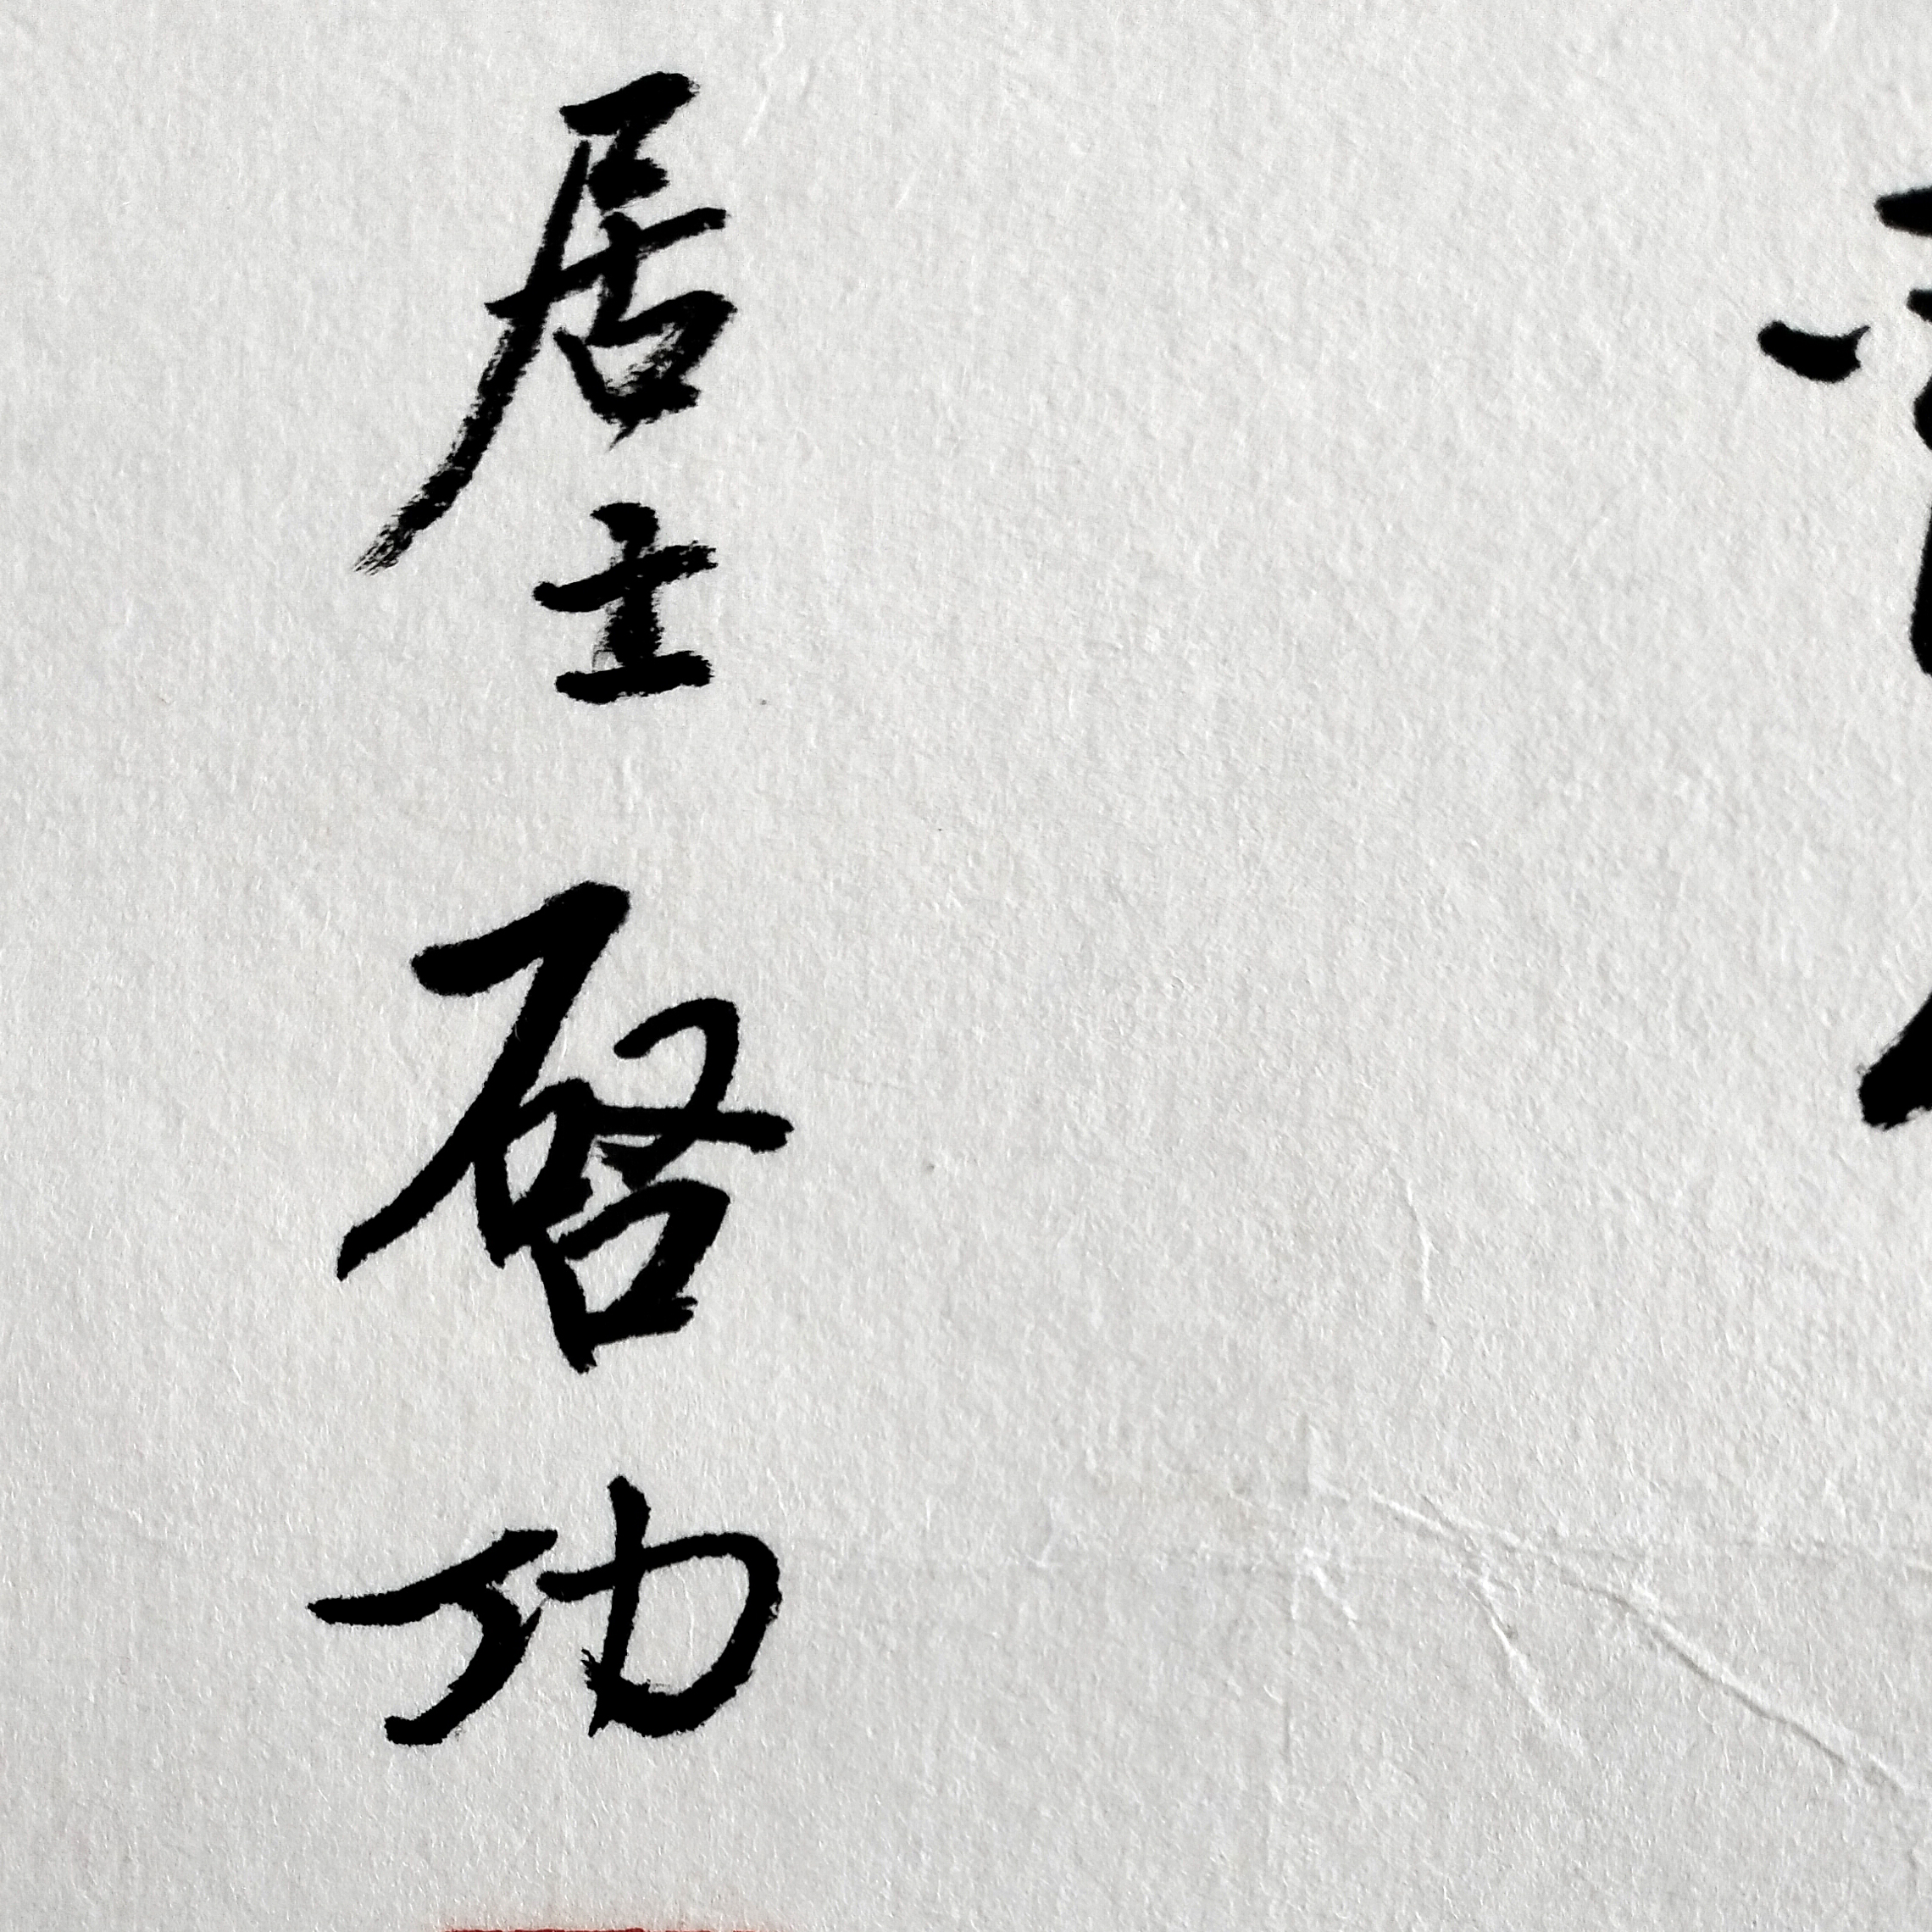 居士啓功